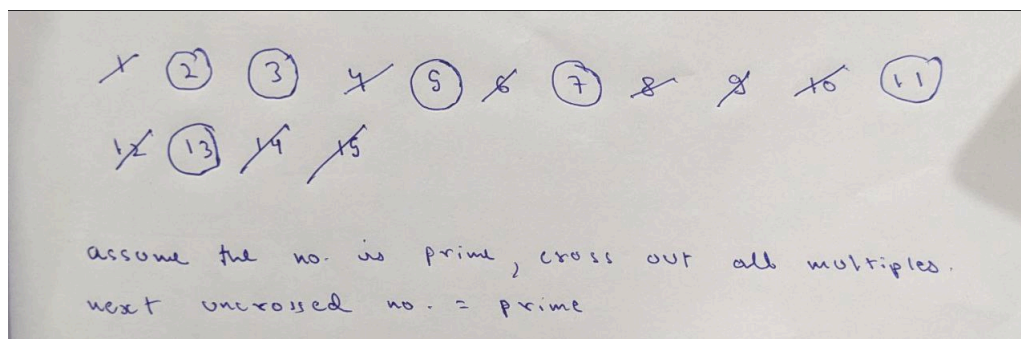 1 2 3 4 5 6 7 8 9 10 11
12 13 14 15
assume the no. is prime, cross out all multiples.
next uncrossed no. = prime